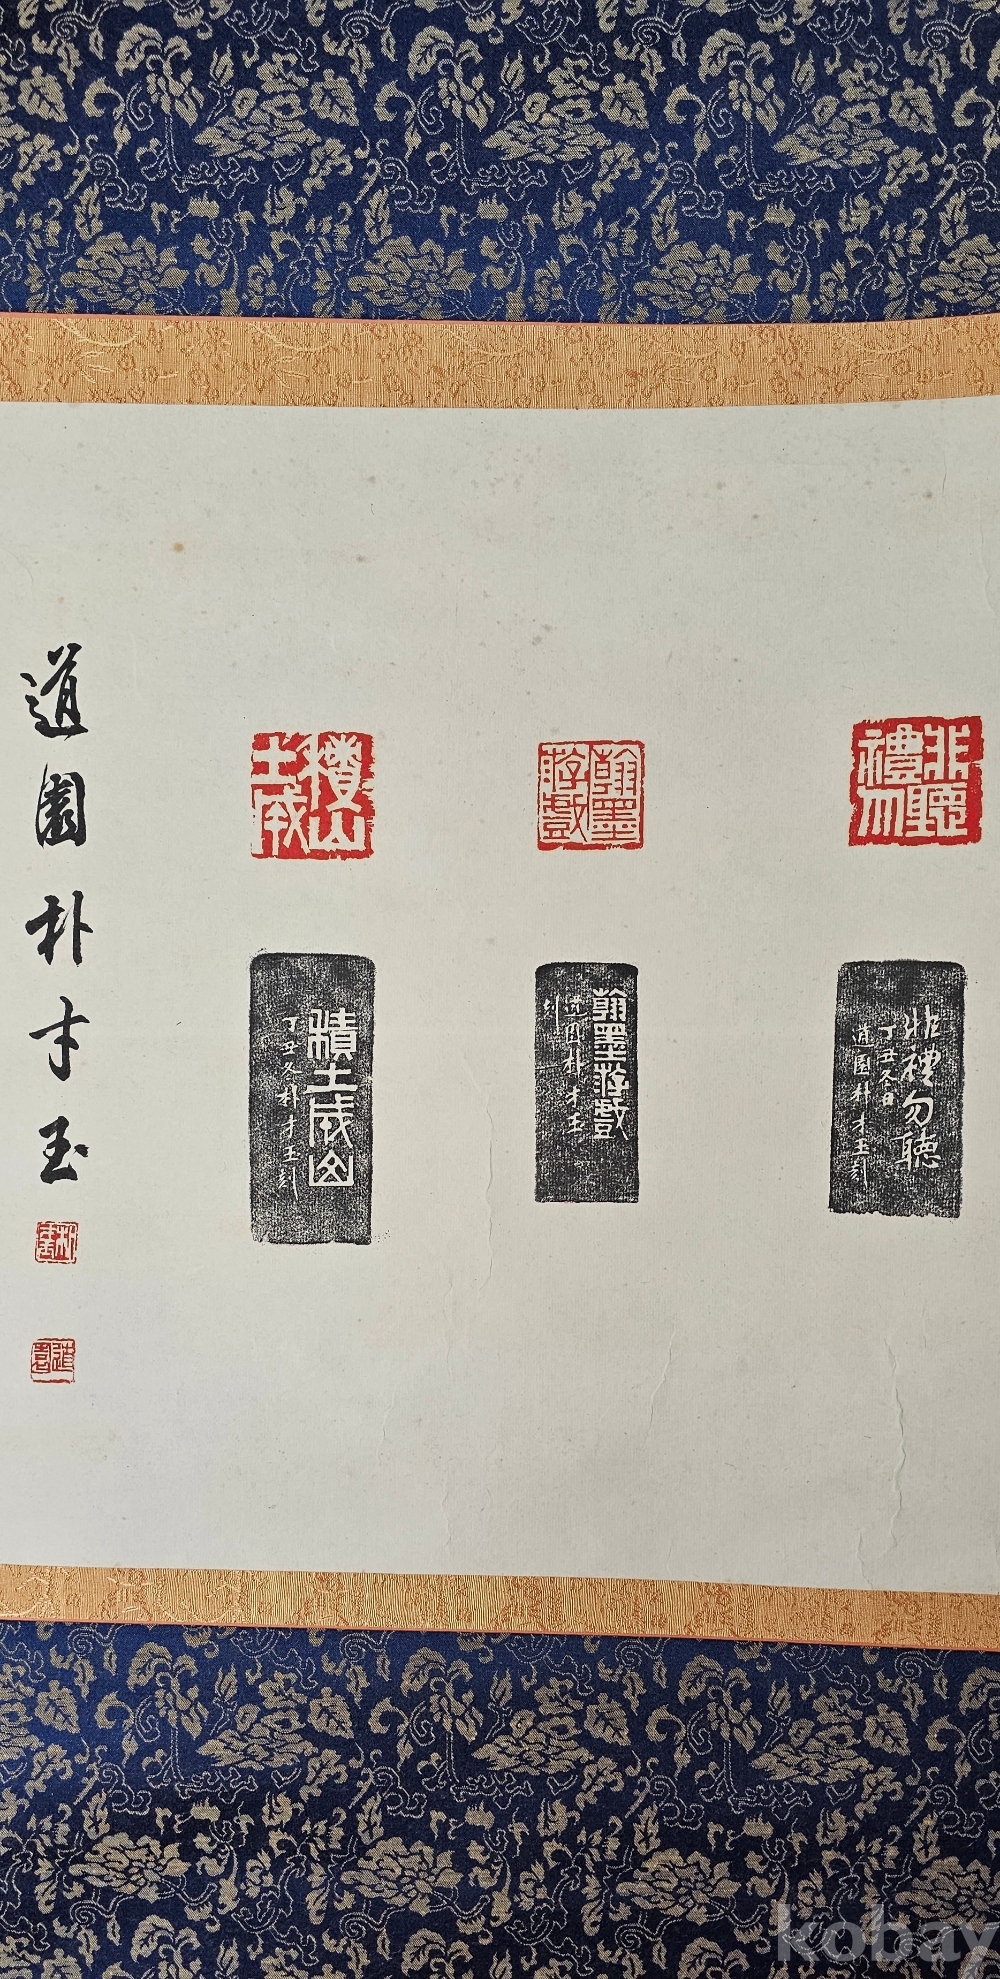 非禮勿聽
非禮勿聽
丁丑冬日
道園朴才玉刻
翰墨游戲
翰墨游戲
道園朴才玉
刻
積土成山
積土成山
丁丑冬朴才玉刻
道園朴才玉
kobay